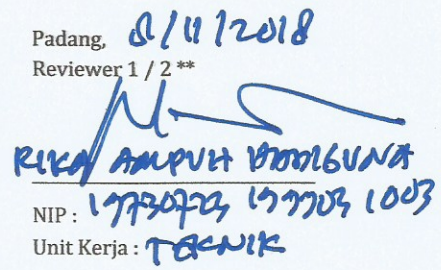 Padang, 8/11/2018
Reviewer 1 / 2 **
RIKA AMPUH HADIGUNA
NIP : 19730723 199903 1003
Unit Kerja : TEKNIK